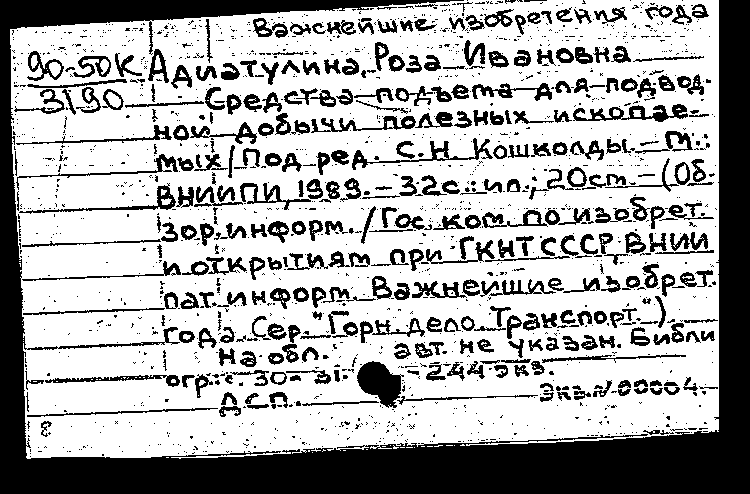 Важнейшие изобретения года
90-50К Адиатулина, Роза Ивановна
3190 Средства подъета для подвод-
ной добычи полезных ископае-
мых / Под ред. С.Н. Кошколды. – М.:
ВНИИПИ, 1989. – 32с.: ил.; 20ст. – (Об-
зор. информ. / Гос. ком. по изобрет.
и открытиям при ГКНТ СССР, ВНИИ
пат. информ. Важнейшие изобрет.
года. Сер. "Горн. дело. Транспорт.")
На обл. авт. не указан. Библи
огр.: с. 30-31. - 244 экз.
ДСП. Экз. N 00004.